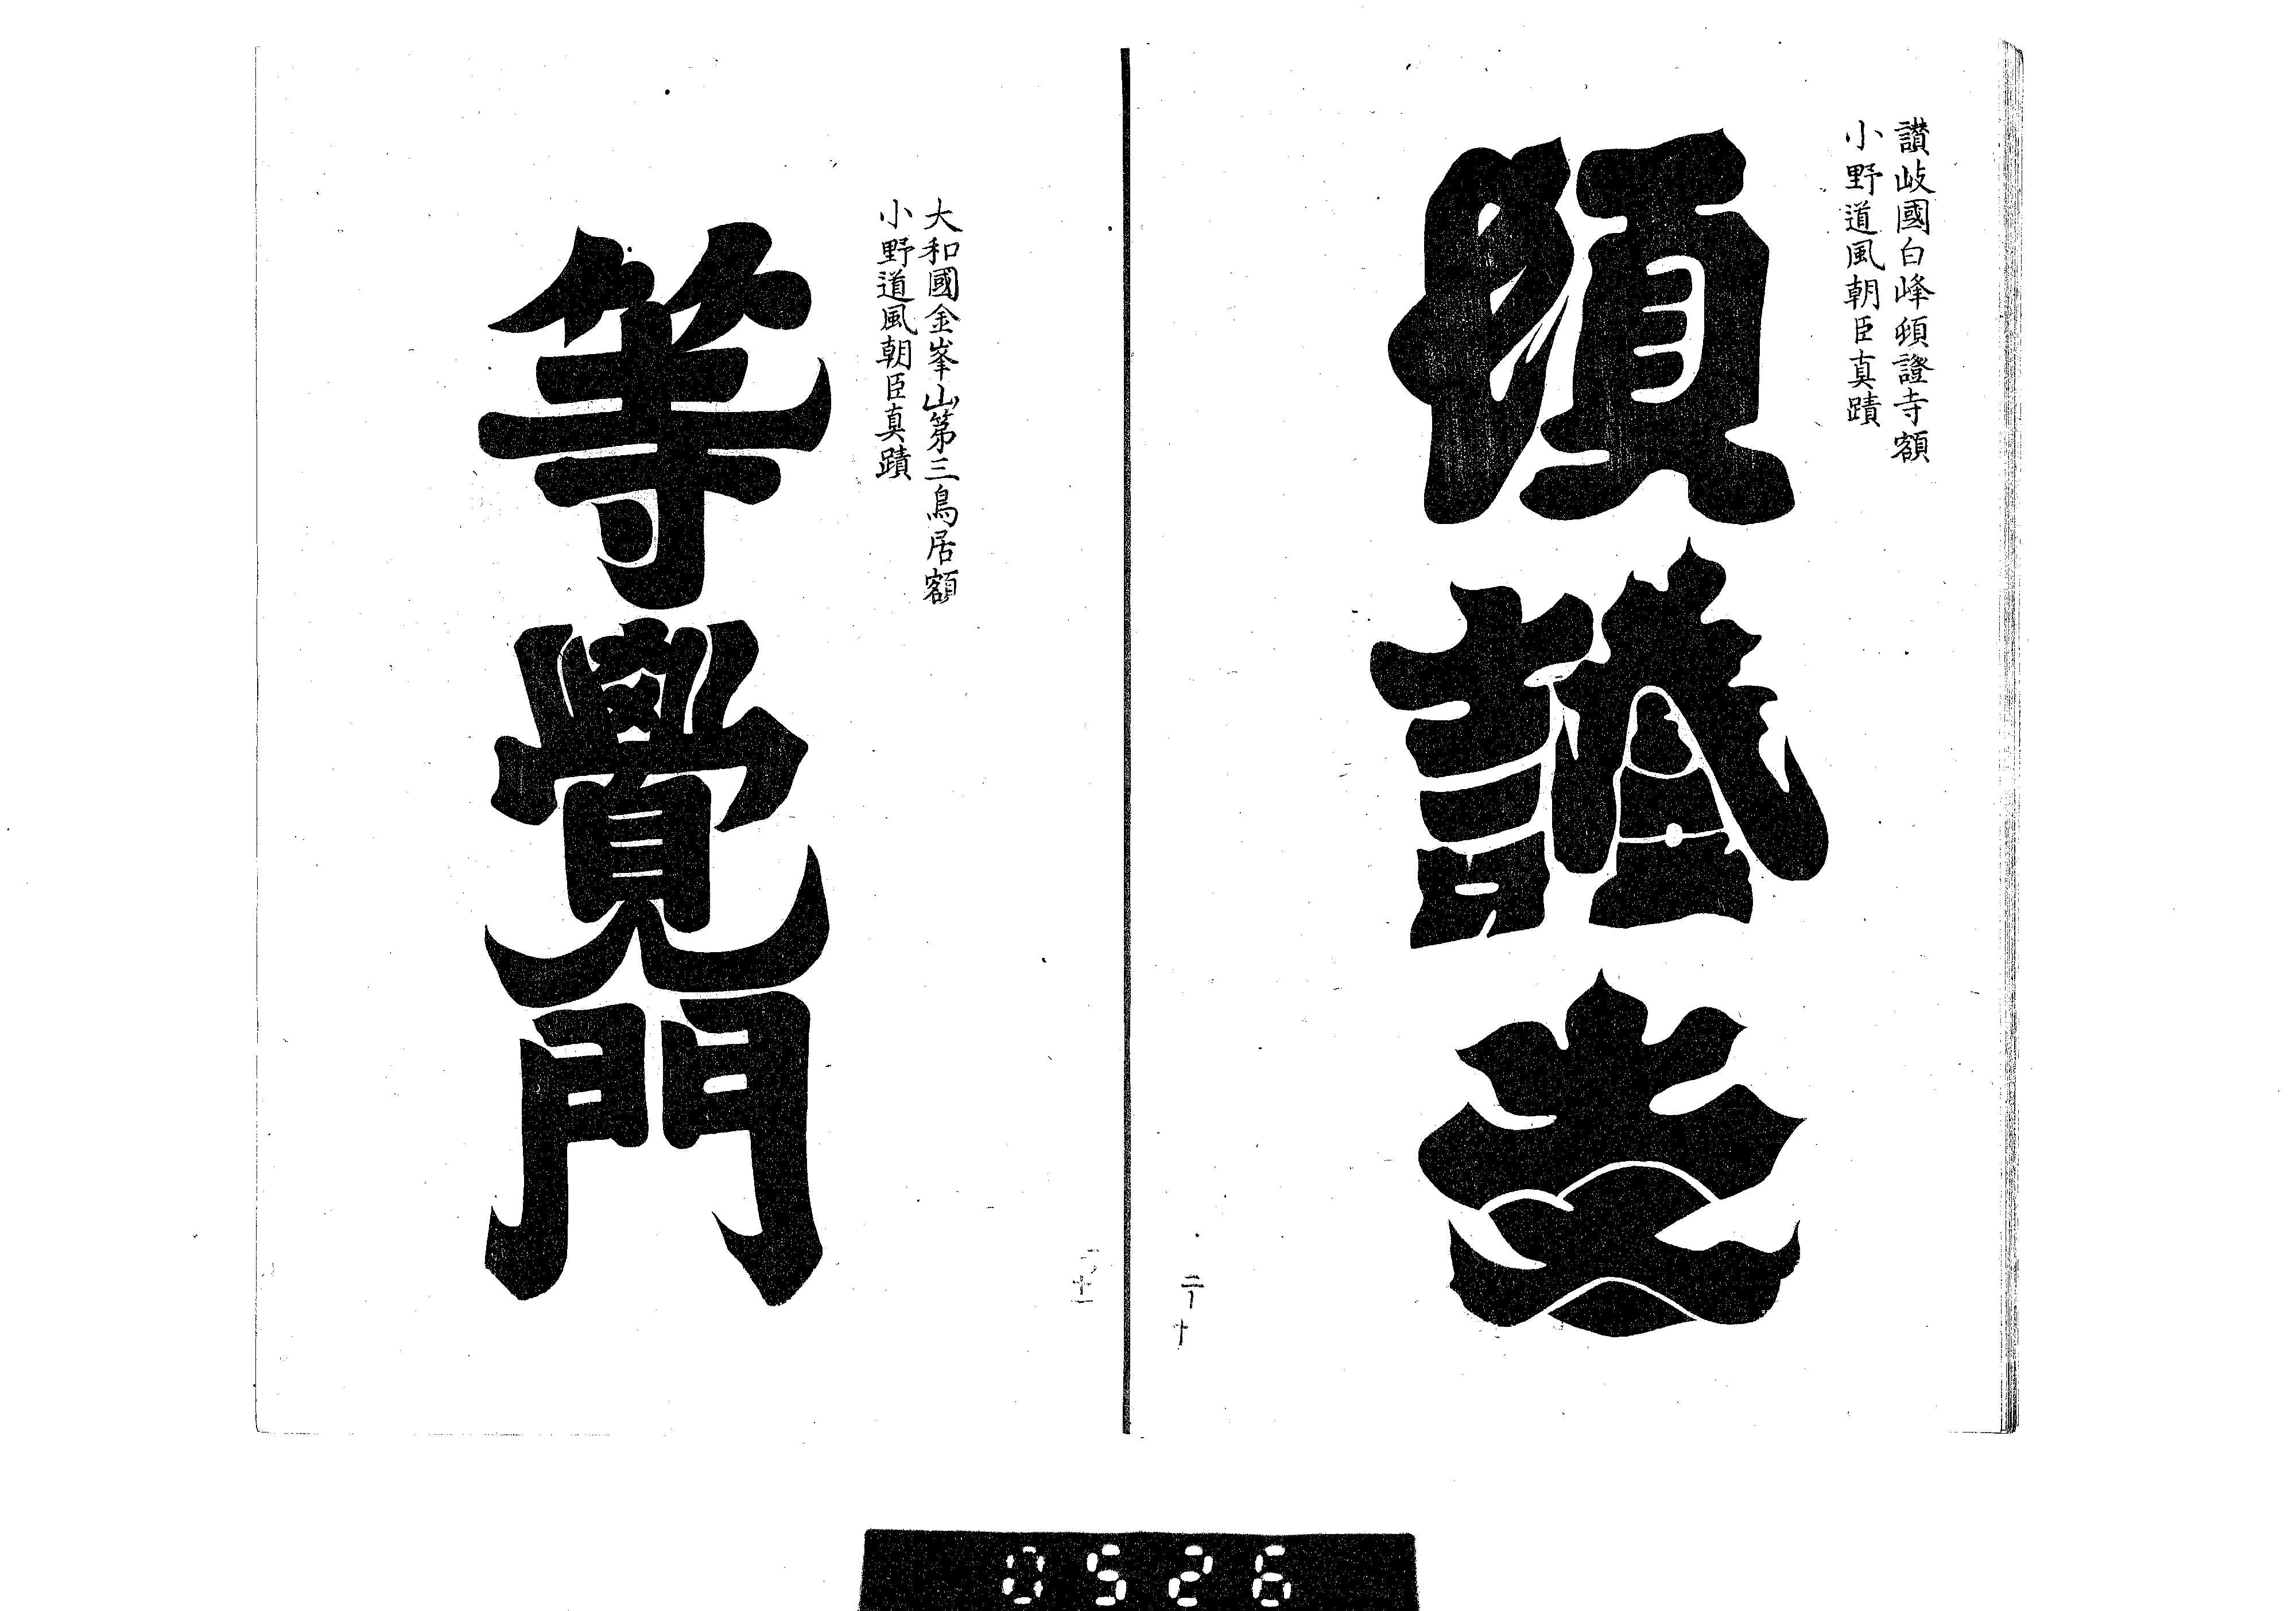 讃岐國白峰頓證寺額
小野道風朝臣真蹟
頓
證
寺
二ノ十
大和國金峯山第三鳥居額
小野道風朝臣真蹟
等
覺
門
十一
0526